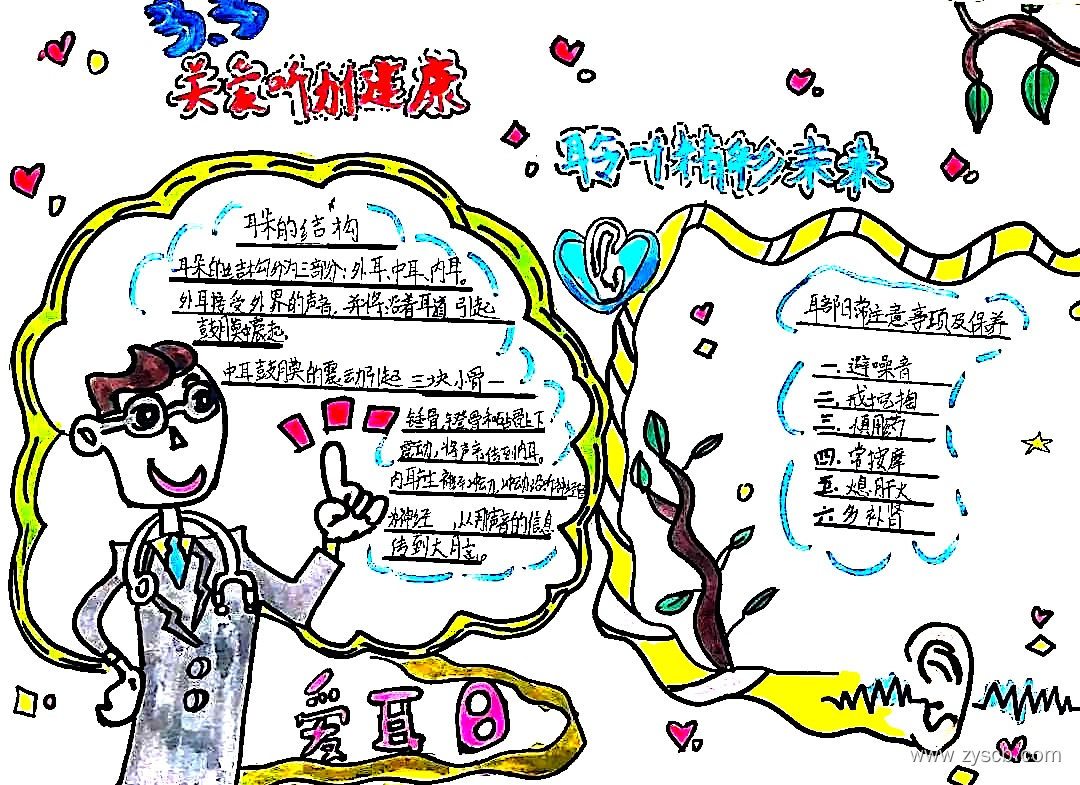 3.3
关爱听力健康
聆听精彩未来
耳朵的结构
耳朵的结构分为三部分：外耳、中耳、内耳。
外耳接受外界的声音，并将沿着耳道引起
鼓膜震起。
中耳鼓膜的震动引起三块小骨—
锤骨、镫骨和砧骨上下
震动，将声音传到内耳。
内耳产生神经冲动，冲动沿
神经，从而声音的信息
传到大脑。
耳部日常注意事项及保养
一.避噪音
二.戒挖掏
三.慎用药
四.常按摩
五.熄肝火
六多补肾
爱耳日
www.zyscb.com